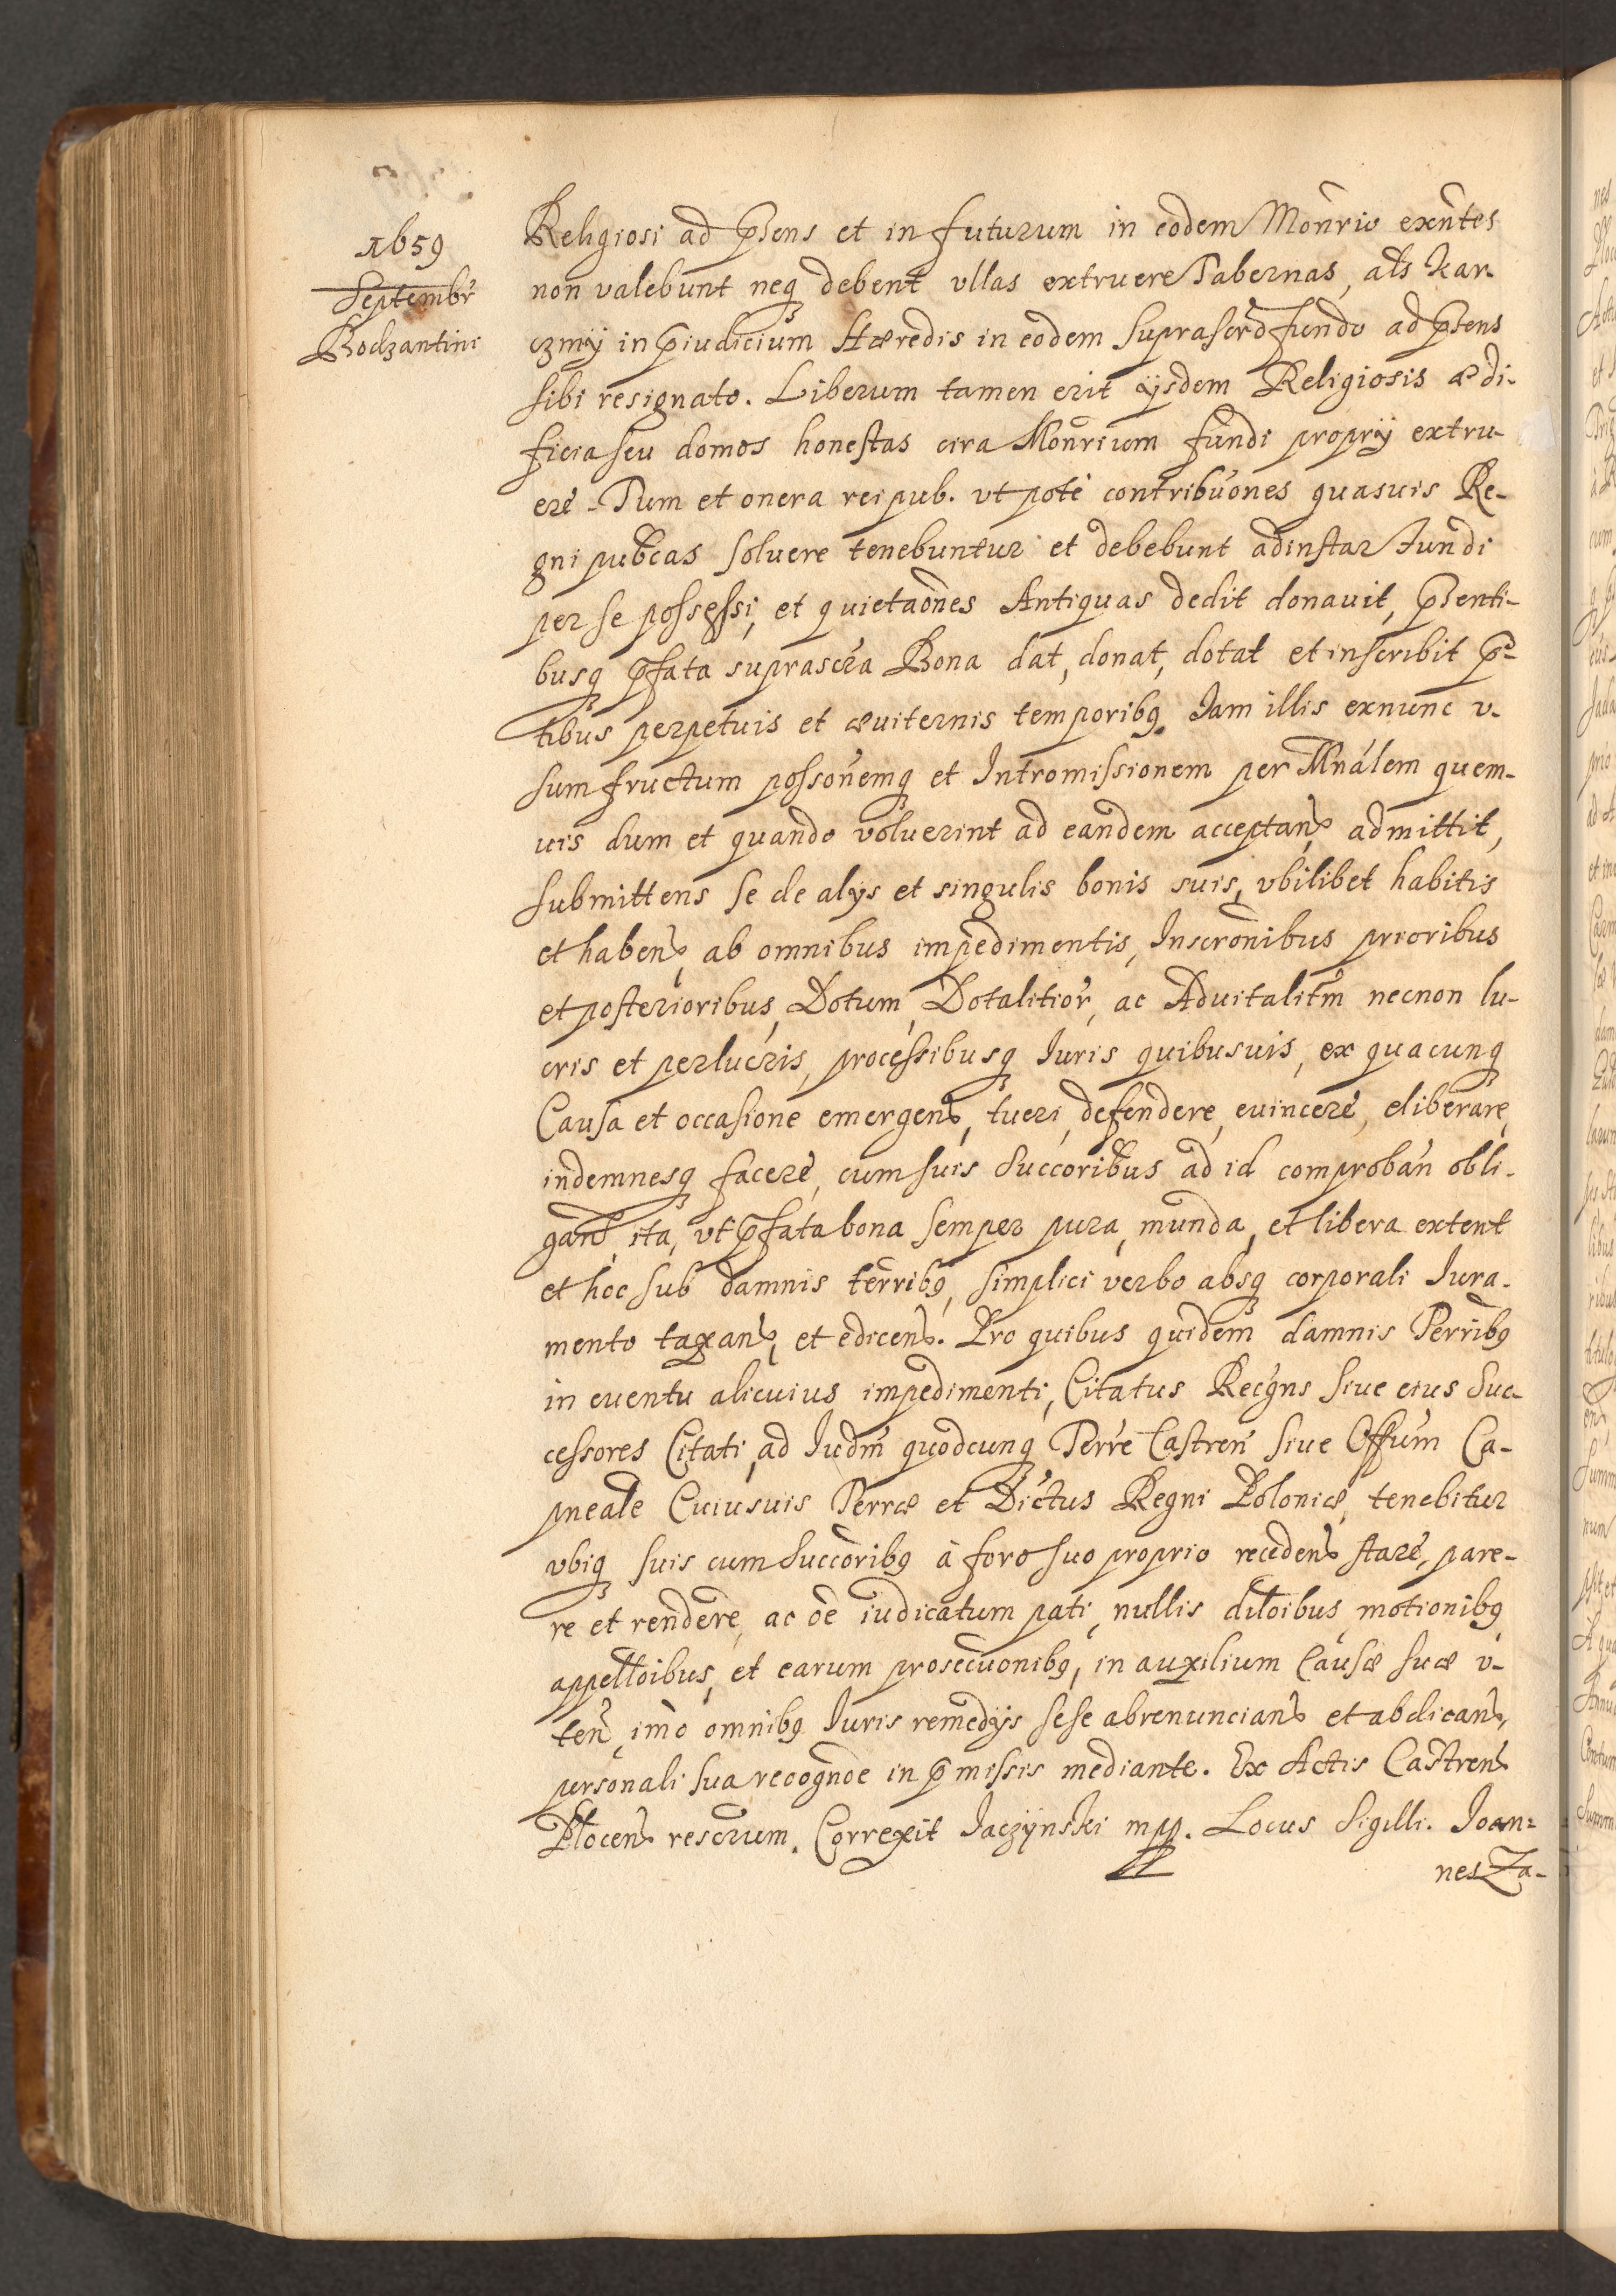 1659
Septembr
Bodzantini
Religiosi ad p̄sens et in futurum in eodem Mon̄rio exn̄tes
non valebunt neq3 debent vllas extruere Tabernas, als Kar-
czmÿ in p̄iudicium Hæredis in eodem suprascrd̄ fundo ad p̄sens
sibi resignato. Liberum tamen erit ijsdem Religiosis ædi-
ficia seu domos honestas cira Mon̄rium fundi proprÿ extru-
ere. Tum et onera rei pub. vt poté contribuónes quasuis Re-
gni pubcas soluere tenebuntur et debebunt adinstar Fundi
per se possessi, et quietaónes Antiquas dedit donauit, p̄senti-
busq3 p̄fata suprascra Bona dat, donat, dotat et inscribit p̄n̄-
tibus perpetuis et æuiternis temporibq. Iam illis exnunc v-
sumfructum possonemq3 et Intromissionem per Mnálem quem-
uis dum et quando voluerint ad eandem acceptan̄, admittit,
submittens se de alÿs et singulis bonis suis, vbilibet habitis
et haben̄, ab omnibus impedimentis, Inscrōnibus prioribus
et posterioribus, Dotum, Dotalitior̄, ac Aduitalitm̄ necnon lu-
cris et perlucris, processibusq3 Iuris quibusuis, ex quacunq3
Causa et occasione emergen̄, tueri, defendere, euincere, eliberare,
indemnesq3 facere, cum suis Succoribus ad id comproban̄ obli-
gan̄, ita, vt p̄fata bona semper pura, munda, et libera extent
et hoc sub damnis terribq, simplici verbo absq3 corporali Iura-
mento taxan̄, et edicen̄. Pro quibus quidem damnis Terribq
in euentu alicuius impedimenti, Citatus Recgns siue eius Suc-
cessores Citati, ad Iudm̄ quodcunq3 Terre Castren̄ siue Offum Ca-
pneale Cuiusuis Terræ et Dictus Regni Poloniæ, tenebitur
vbiq3 suis cum Succoribq à foro suo proprio receden̄ stare, pare-
re et rendere, ac oē iudicatum pati, nullis diloibus, motionibq,
appelloibus, et earum prosecuonibq, in auxilium Causæ suæ v-
ten̄, imò omnibq Iuris remedÿs sese abrenuncian̄ et abdican̄,
personali sua recognoe in p̄missis mediante. Ex Actis Castren̄
Plocen̄ rescrum. Correxit Jaczÿnski mpp. Locus Sigilli. Ioan=
nes Za-